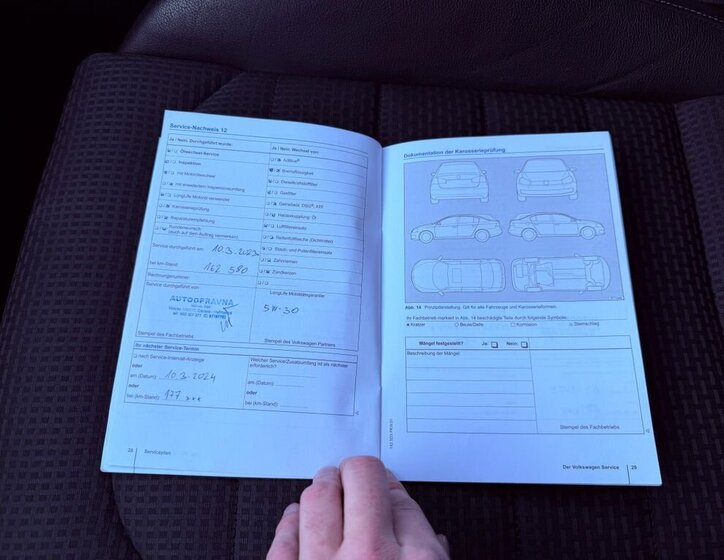 Service-Nachweis 12
Ja / Nein Durchgeführt wurde:
Ölwechsel-Service
Inspektion
mit Motorölwechsel
mit erweitertem Inspektionsumfang
LongLife Motoröl verwendet
Karosserieprüfung
Reparaturempfehlung
Kundenwunsch
(auch auf dem Auftrag vermerken)
Ja / Nein Wechsel von:
AdBlue®
Bremsflüssigkeit
Dieselkraftstofffilter
Gasfilter
Getriebeöl: DSG®, ATF
Haldexkupplung: Öl
Luftfiltereinsatz
Reifenfüllflasche (Dichtmittel)
Staub- und Pollenfiltereinsatz
Zahnriemen
Zündkerzen
Service durchgeführt am: 10.3.2023
bei km-Stand: 162 580
Rechnungsnummer:
Service durchgeführt von:
AUTOOPRAVNA
Stempel des Fachbetriebs
LongLife Mobilitätsgarantie:
5W-30
Stempel des Volkswagen Partners
Ihr nächster Service-Termin
nach Service-Intervall-Anzeige
oder
am (Datum): 10.3.2024
oder
bei (km-Stand): 177 xxx
Welcher Service/Zusatzumfang ist als nächster
erforderlich?
am (Datum):
oder
bei (km-Stand):
28 Serviceplan
Dokumentation der Karosserieprüfung
Abb. 14 Prinzipdarstellung. Gilt für alle Fahrzeuge und Karosserieformen.
Ihr Fachbetrieb markiert in Abb. 14 beschädigte Teile durch folgende Symbole:
Kratzer Beule/Delle Korrosion Steinschlag
Mängel festgestellt? Ja: Nein:
Beschreibung der Mängel:
Stempel des Fachbetriebs
Der Volkswagen Service 29